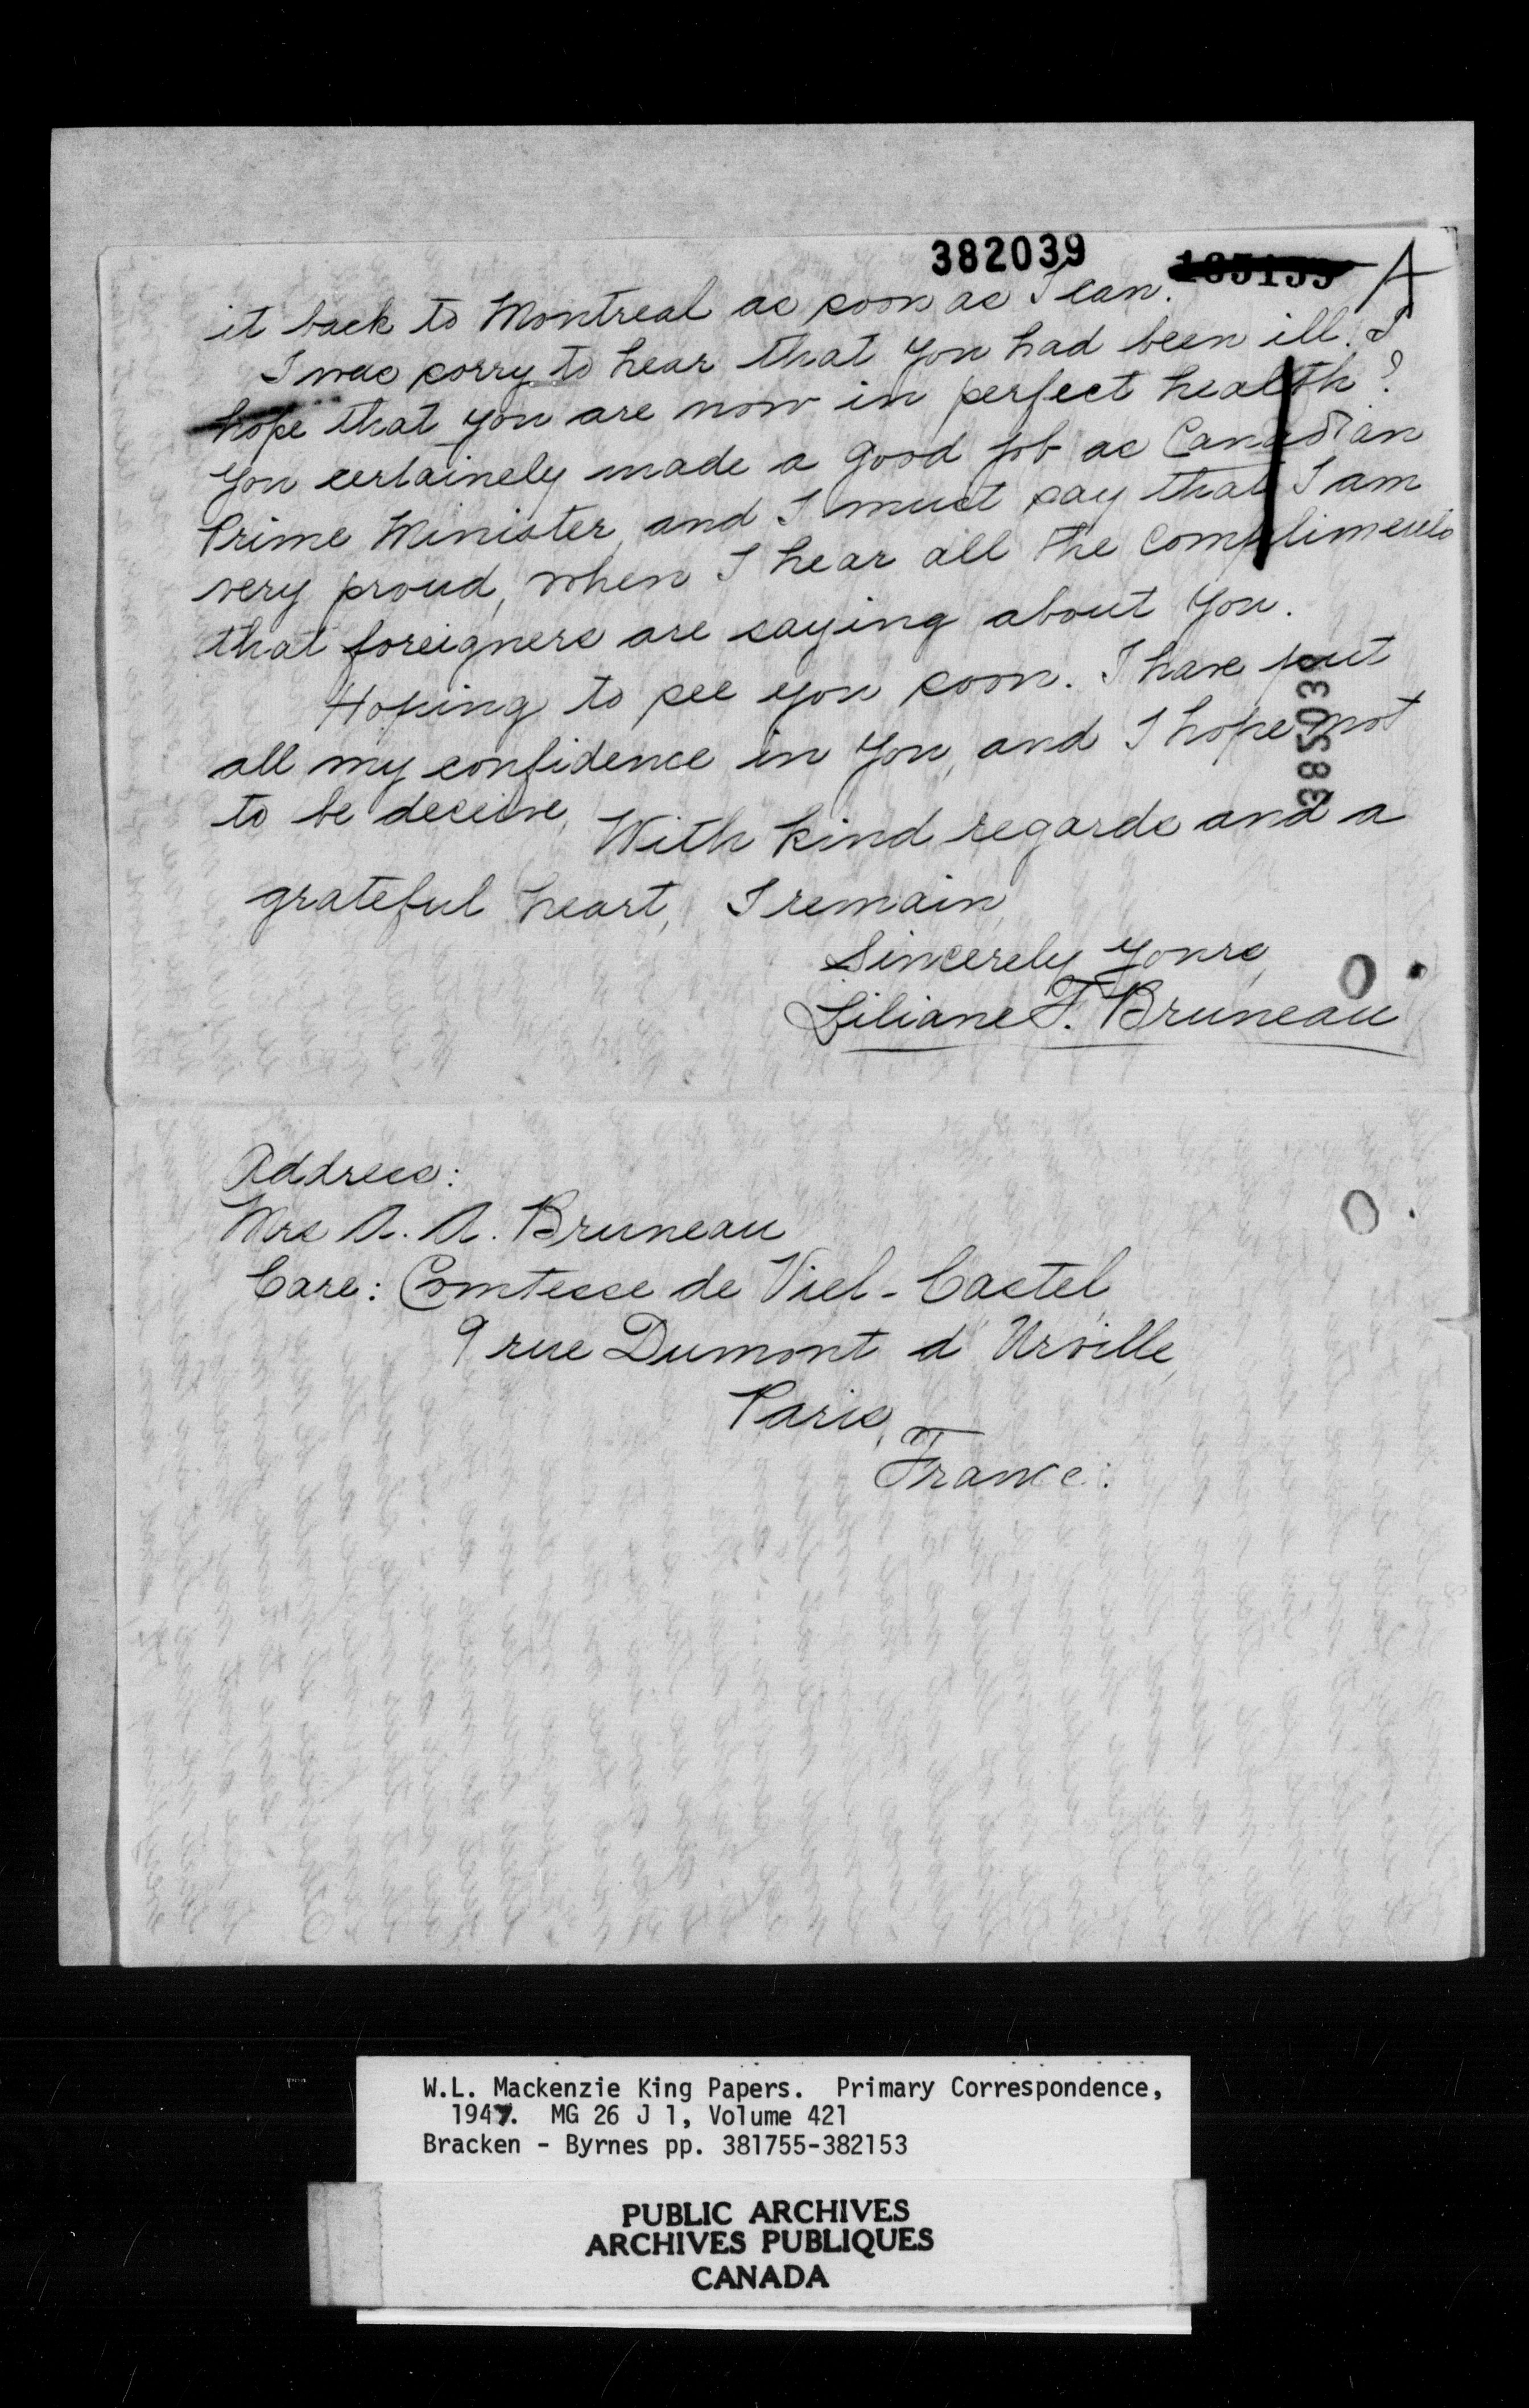 382039
A
it back to Montreal as soon as I can.
I was sorry to hear that you had been ill. I
hope that you are now in perfect health?
You certainely made a good job as Canadian
Prime Minister, and I must say that I am
very proud, when I hear all the compliments
that foreigners are saying about you.
Hoping to see you soon. I have put
all my confidence in you, and I hope not
to be deceive, With kind regards and a
grateful heart, I remain,
Sincerely yours,
Liliane F. Bruneau
Address:
Mrs A. A. Bruneau
Care: Comtesse de Viel-Castel,
9 rue Dumont d'Urville,
Paris,
France.
W.L. Mackenzie King Papers. Primary Correspondence,
1947. MG 26 J 1, Volume 421
Bracken - Byrnes pp. 381755-382153
PUBLIC ARCHIVES
ARCHIVES PUBLIQUES
CANADA